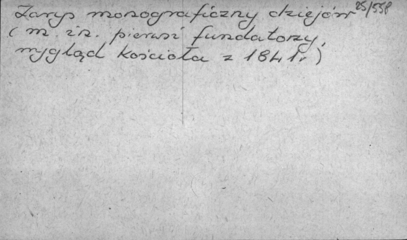 Zarys monograficzny dziejów 25/558
(m. in. pierwsi fundatorzy,
wygląd kościoła z 1841r.)